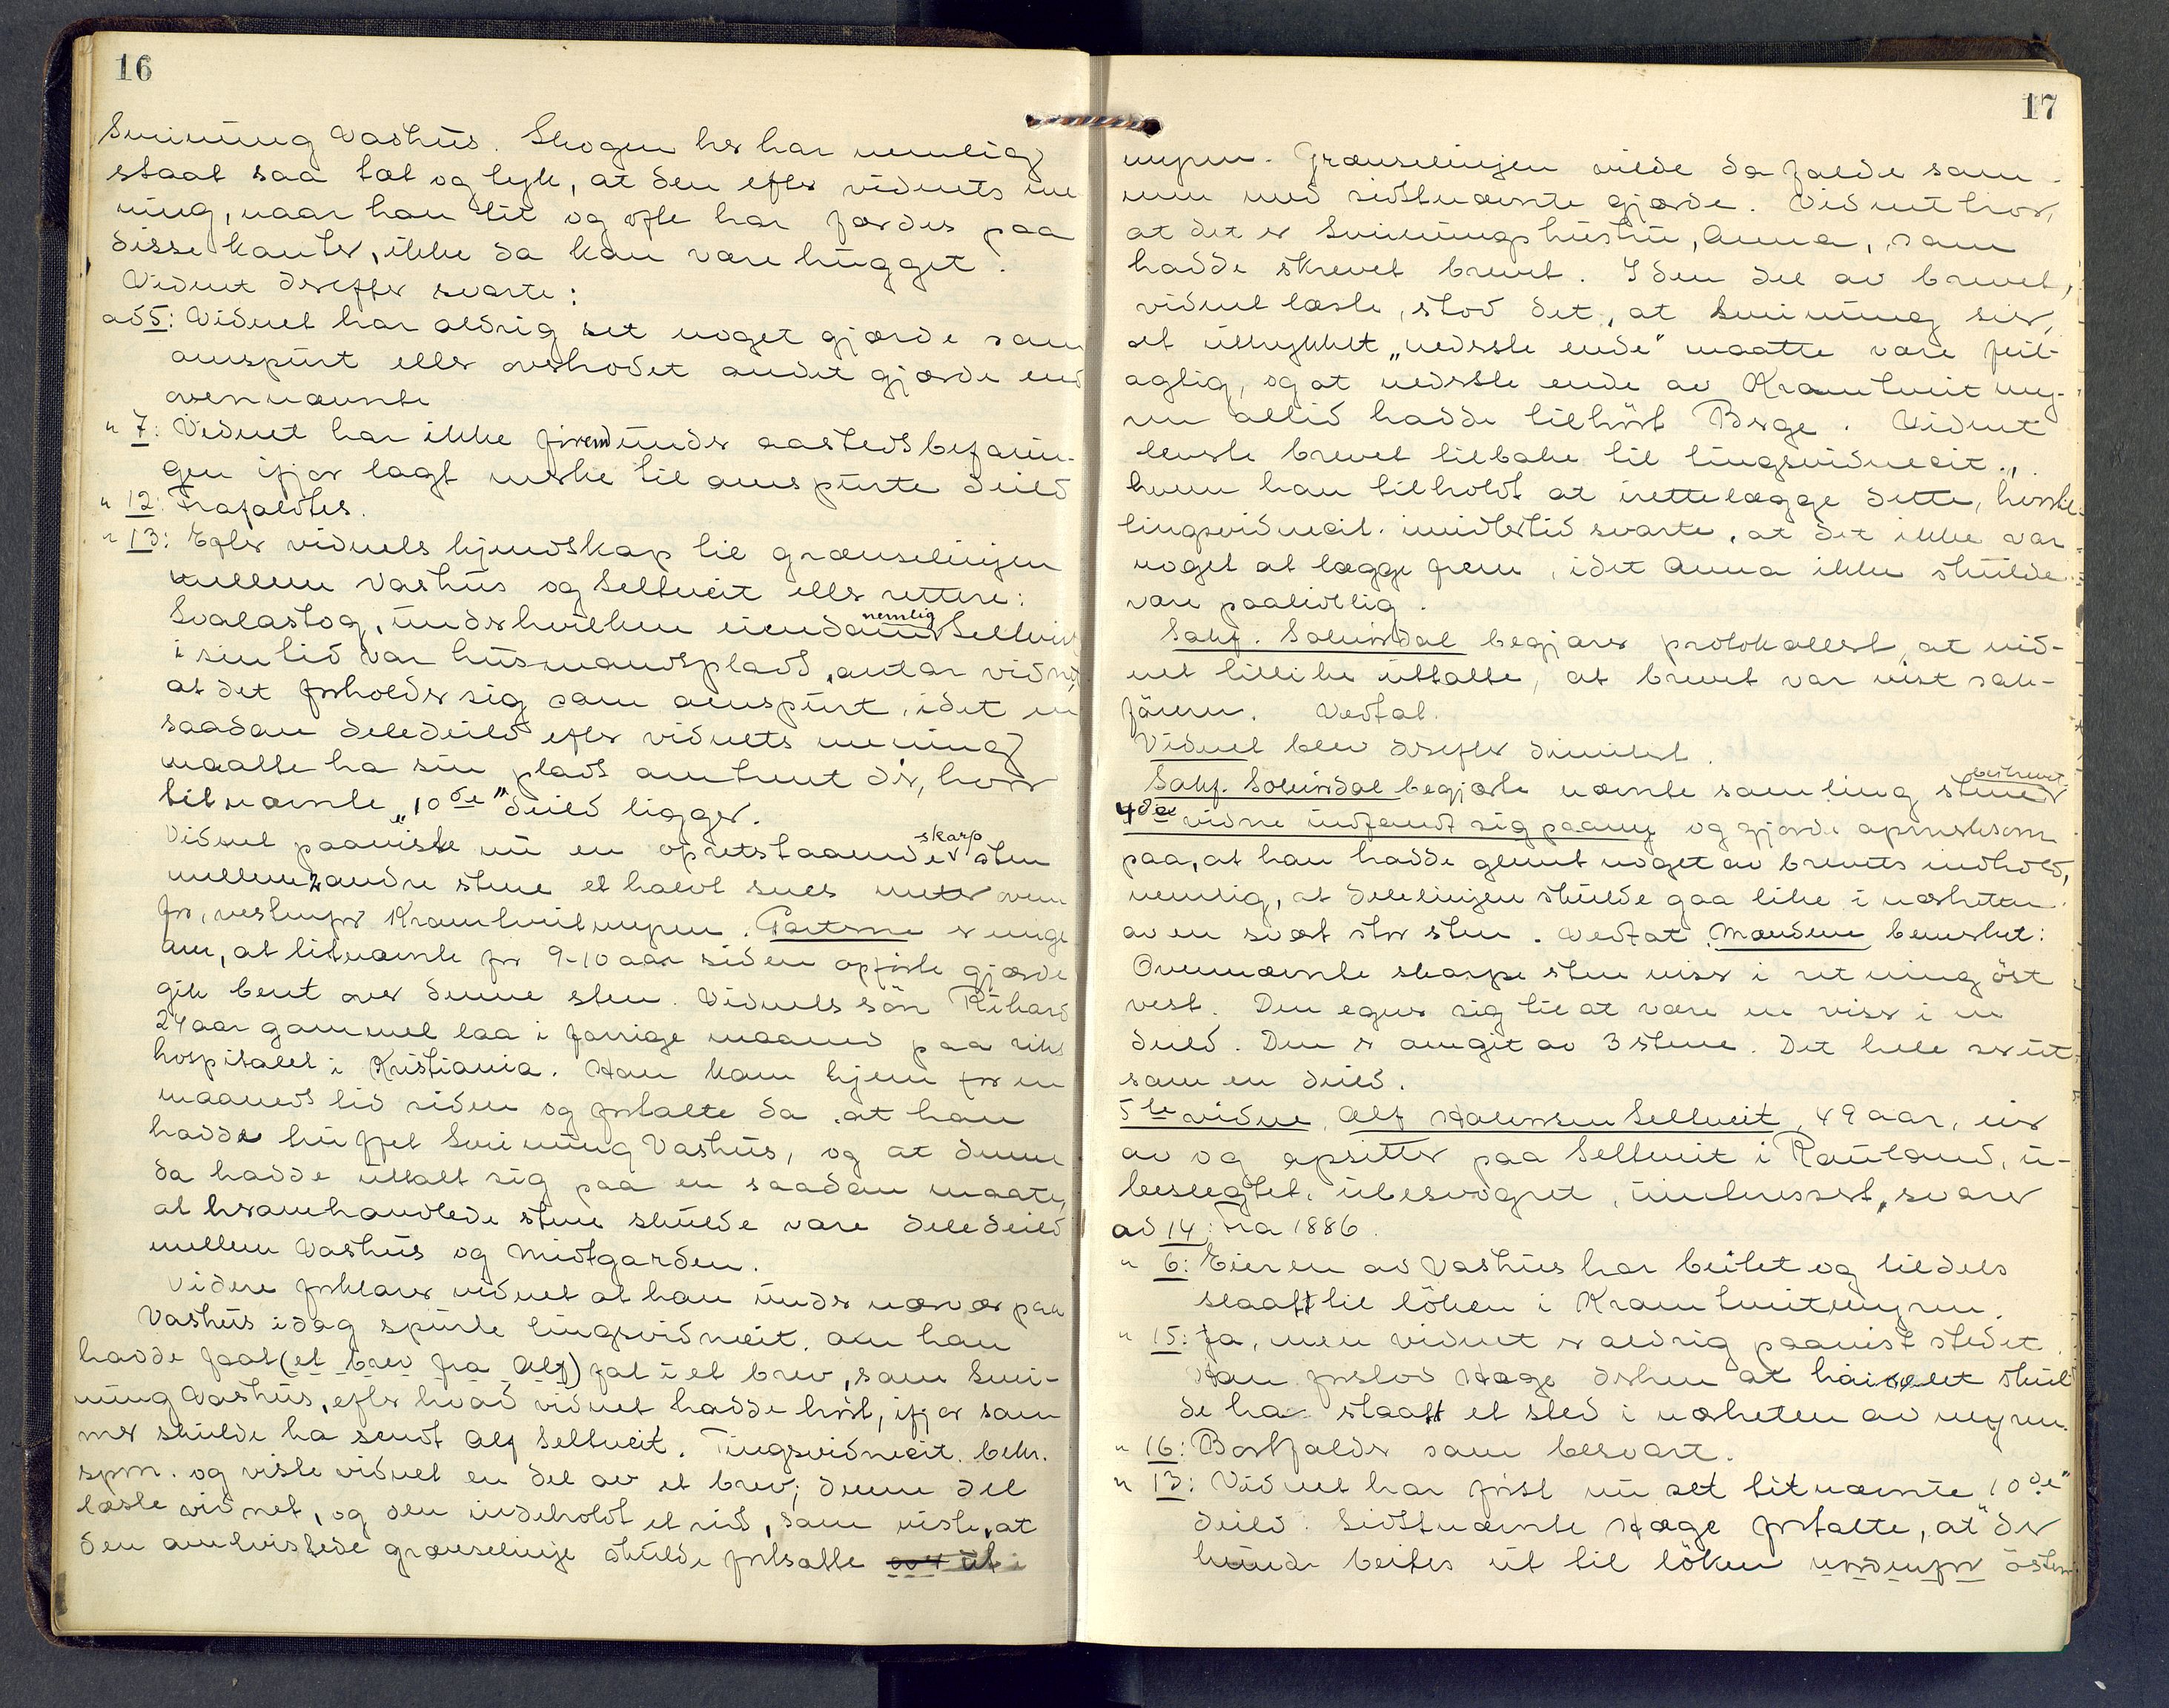 16
Svinung Vashus. Skogen her har nemlig
staat saa tæt og tyk, at den efter vidnets me
ning, naar han tit og ofte har færdes paa
disse kanter, ikke da kan være hugget.
Vidnet derefter svarte:
ad 5: Vidnet har aldrig set noget gjærde som
omspurt eller overhodet andet gjærde end
ovennævnte
" 7: Vidnet har ikke før end under aastedsbefarin-
gen ifjor lagt merke til omspurte deild
" 12: Frafaldtes.
" 13: Efter vidnets kjendskap til grænselinjen
mellem Vashus og Seltveit eller rettere:
Svalastog, under hvilken eiendom nemlig Seltveit
i sin tid var husmandsplads, antar vidnet,
at det forholder sig som omspurt, idet en
saadan deledeild efter vidnets mening
maatte ha sin plads omtrent der, hvor
titnævnte "10de" deild ligger.
Vidnet paaviste nu en opretstaaende skarp sten
mellem 2 andre stene et halvt snes meter oven
for, vestenfor Kramtveitmyren. Parterne er enige
om, at titnævnte for 9-10 aar siden opførte gjærde
gik bent over denne sten. Vidnets søn Rikard
24 aar gammel laa i forrige maaned paa riks
hospitalet i Kristiania. Han kom hjem for en
maaneds tid siden og fortalte da, at han
hadde truffet Svinung Vashus, og at denne
da hadde uttalt sig paa en saadan maate,
at heromhandlede stene skulde være deledeild
mellem Vashus og Midtgarden.
Videre forklarer vidnet at han under nærvær paa
Vashus idag spurte tingsvidneit. om han
hadde faat (et brev fra Alf) fat i et brev, som Svi-
nung Vashus, efter hvad vidnet hadde hørt, ifjor som
mer skulde ha sendt Alf Seltveit. Tingsvidneit. bekr.
spm. og viste vidnet en del av et brev; denne del
læste vidnet, og den indeholdt et rids, som viste, at
den omtvistede grænselinje skulde fortsatte over ut i
17
myren. Grænselinjen vilde da falde sam-
men med sidstnævnte gjærde. Vidnet tror,
at det er Svinungs hustru, Anna, som
hadde skrevet brevet. I den del av brevet,
vidnet læste, stod det, at Svinung sier,
at uttrykket "nederste ende" maatte være feil-
agtig, og at nederste ende av Kramtveitmy-
ren altid hadde tilhørt Berge. Vidnet
leverte brevet tilbake til tingsvidneit.,
hvem han tilholdt at irettelægge dette, hvortil
tingsvidneit. imidlertid svarte, at det ikke var
noget at lægge frem, idet Anna ikke skulde
være paalidelig.
Sakf. Solvirdal begjærer protokollert, at vid-
net tillike uttalte, at brevet var vist sak-
føreren. Vedtat.
Vidnet blev derefter dimitert.
Sakf. Solvirdal begjærte nævnte samling stener beskrevet
4de vidne indfandt sig paany og gjorde opmerksom
paa, at han hadde glemt noget av brevets indhold,
nemlig, at delelinjen skulde gaa like i nærheten
av en svært stor sten. Vedtat. Mændene bemerket:
Ovennævnte skarpe sten viser i retning øst
vest. Den egner sig til at være en viser i en
deild. Den er omgit av 3 stene. Det hele ser ut
som en deild.
5te vidne, Alf Halvorsen Seltveit, 49 aar, eier
av og opsitter paa Seltveit i Rauland, u-
beslegtet, ubesvogret, uinteressert, svarer
ad 14: Fra 1886.
" 6: Eieren av Vashus har beitet og tildels
slaatt til løken i Kramtveitmyren.
" 15: Ja, men vidnet er aldrig paavist stedet.
Han forstod Hæge derhen at huset skul
de ha staatt et sted i nærheten av myren.
" 16: Bortfalder som besvart.
" 13: Vidnet har først nu set titnævnte 10de"
deild. Sidstnævnte Hæge fortalte, at "der
kunde beites ut til løken nordenfor østen